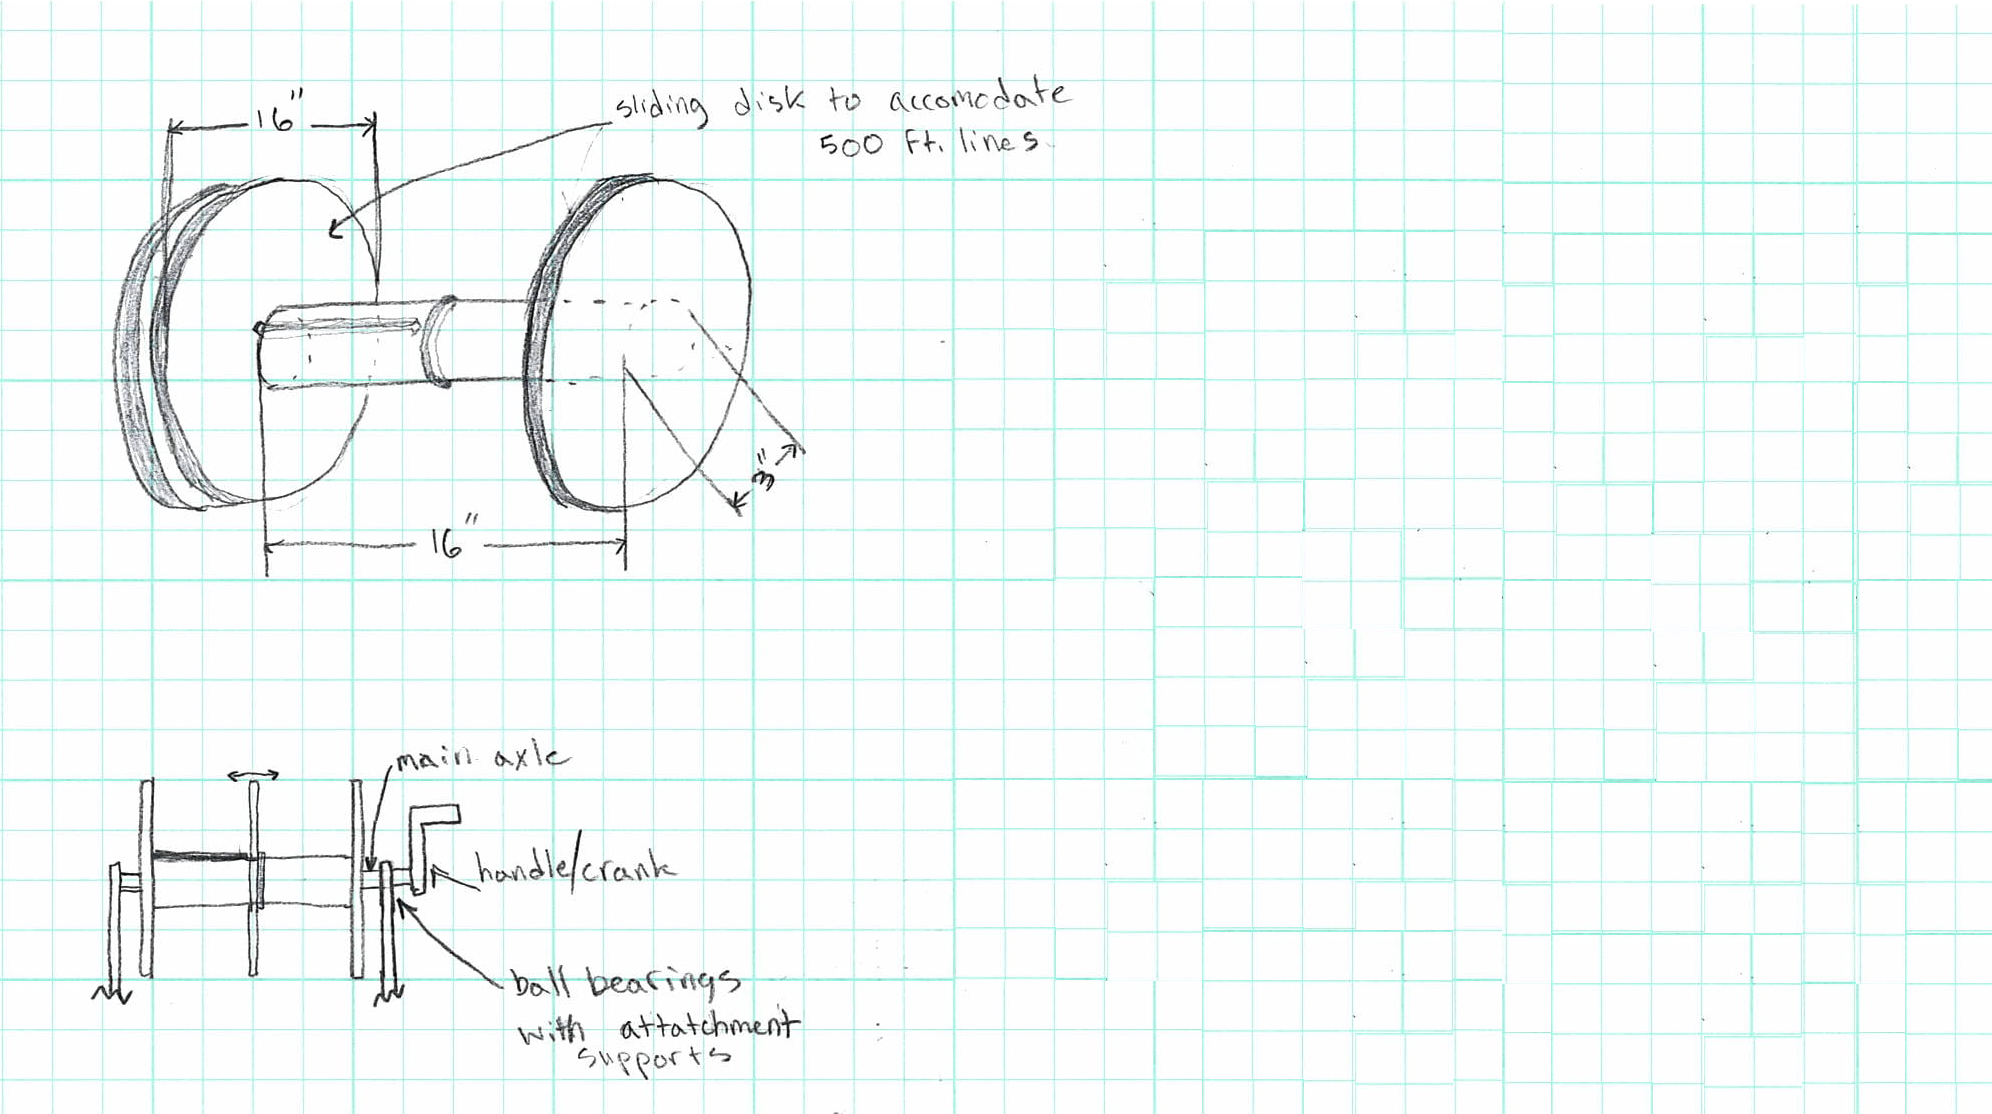 16"
sliding disk to accomodate
500 Ft. lines
3"
16"
main axle
handle/crank
ball bearings
with attatchment
supports